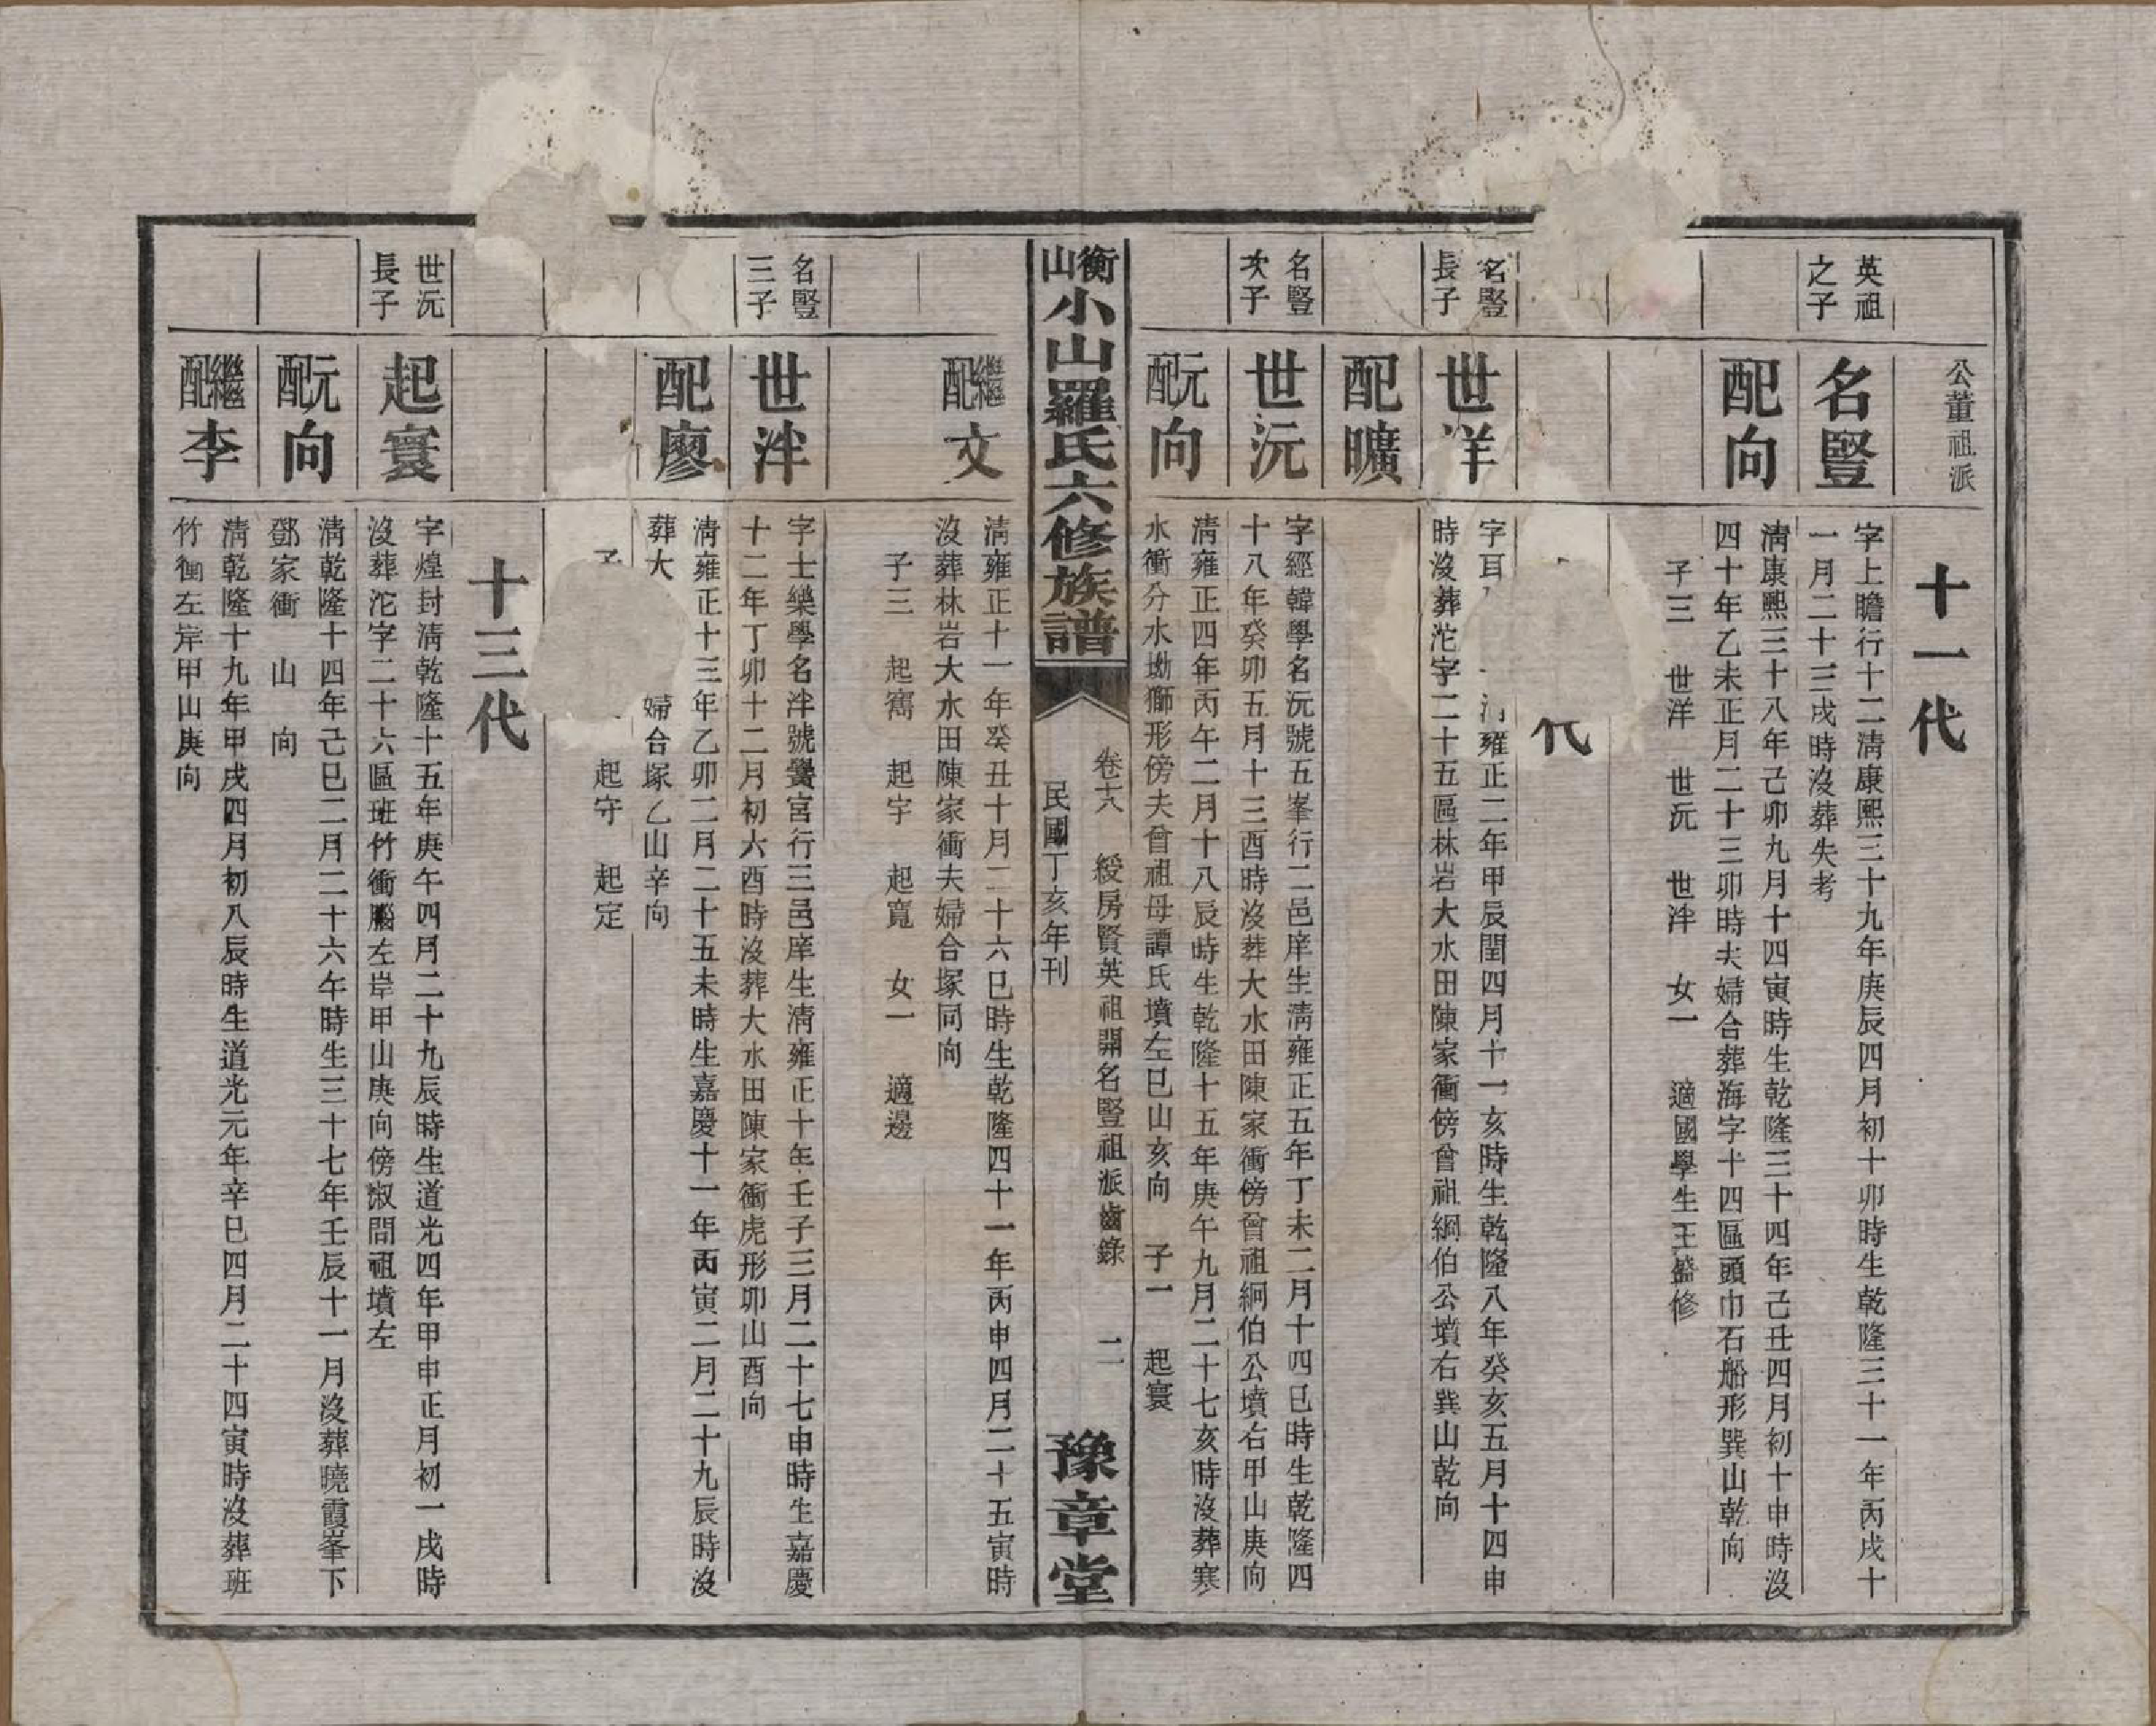 公董祖派
十一代
英祖之子
名豎
字上瞻行十二淸康熙三十九年庚辰四月初十卯時生乾隆三十一年丙戌十
一月二十三戌時沒葬失考
配向
淸康熙三十八年己卯九月十四寅時生乾隆三十四年己丑四月初十申時沒
四十年乙未正月二十三卯時夫婦合葬海字十四區頭巾石船形巽山乾向
子三 世洋 世沅 世泮 女一 適國學生王盛修
代
名豎長子
世洋
字耳 雍正二年甲辰閏四月十一亥時生乾隆八年癸亥五月十四申
時沒葬沱字二十五區林岩大水田陳家衝傍曾祖綱伯公墳右巽山乾向
配曠
名豎次子
世沅
字經韓學名沅號五峯行二邑庠生淸雍正五年丁未二月十四巳時生乾隆四
十八年癸卯五月十三酉時沒葬大水田陳家衝傍曾祖絅伯公墳右甲山庚向
元配向
淸雍正四年丙午二月十八辰時生乾隆十五年庚午九月二十七亥時沒葬寒
水衝分水坳獅形傍夫曾祖母譚氏墳左巳山亥向 子一 起寰
衡山小山羅氏六修族譜
卷六 綬房賢英祖開名豎祖派齒錄 二
民國丁亥年刊
豫章堂
繼配文
淸雍正十一年癸丑十月二十六巳時生乾隆四十一年丙申四月二十五寅時
沒葬林岩大水田陳家衝夫婦合塚同向
子三 起寯 起宇 起寬 女一 適邊
名豎三子
世泮
字士樂學名泮號黌宮行三邑庠生淸雍正十年壬子三月二十七申時生嘉慶
十二年丁卯十二月初六酉時沒葬大水田陳家衝虎形卯山酉向
配廖
淸雍正十三年乙卯二月二十五未時生嘉慶十一年丙寅二月二十九辰時沒
葬大 婦合塚乙山辛向
子 起守 起定
十三代
世沅長子
起寰
字煌封淸乾隆十五年庚午四月二十九辰時生道光四年甲申正月初一戌時
沒葬沱字二十六區班竹衝腦左岸甲山庚向傍淑閒祖墳左
元配向
淸乾隆十四年己巳二月二十六午時生三十七年壬辰十一月沒葬曉霞峯下
鄧家衝 山 向
繼配李
淸乾隆十九年甲戌四月初八辰時生道光元年辛巳四月二十四寅時沒葬班
竹衝左岸甲山庚向